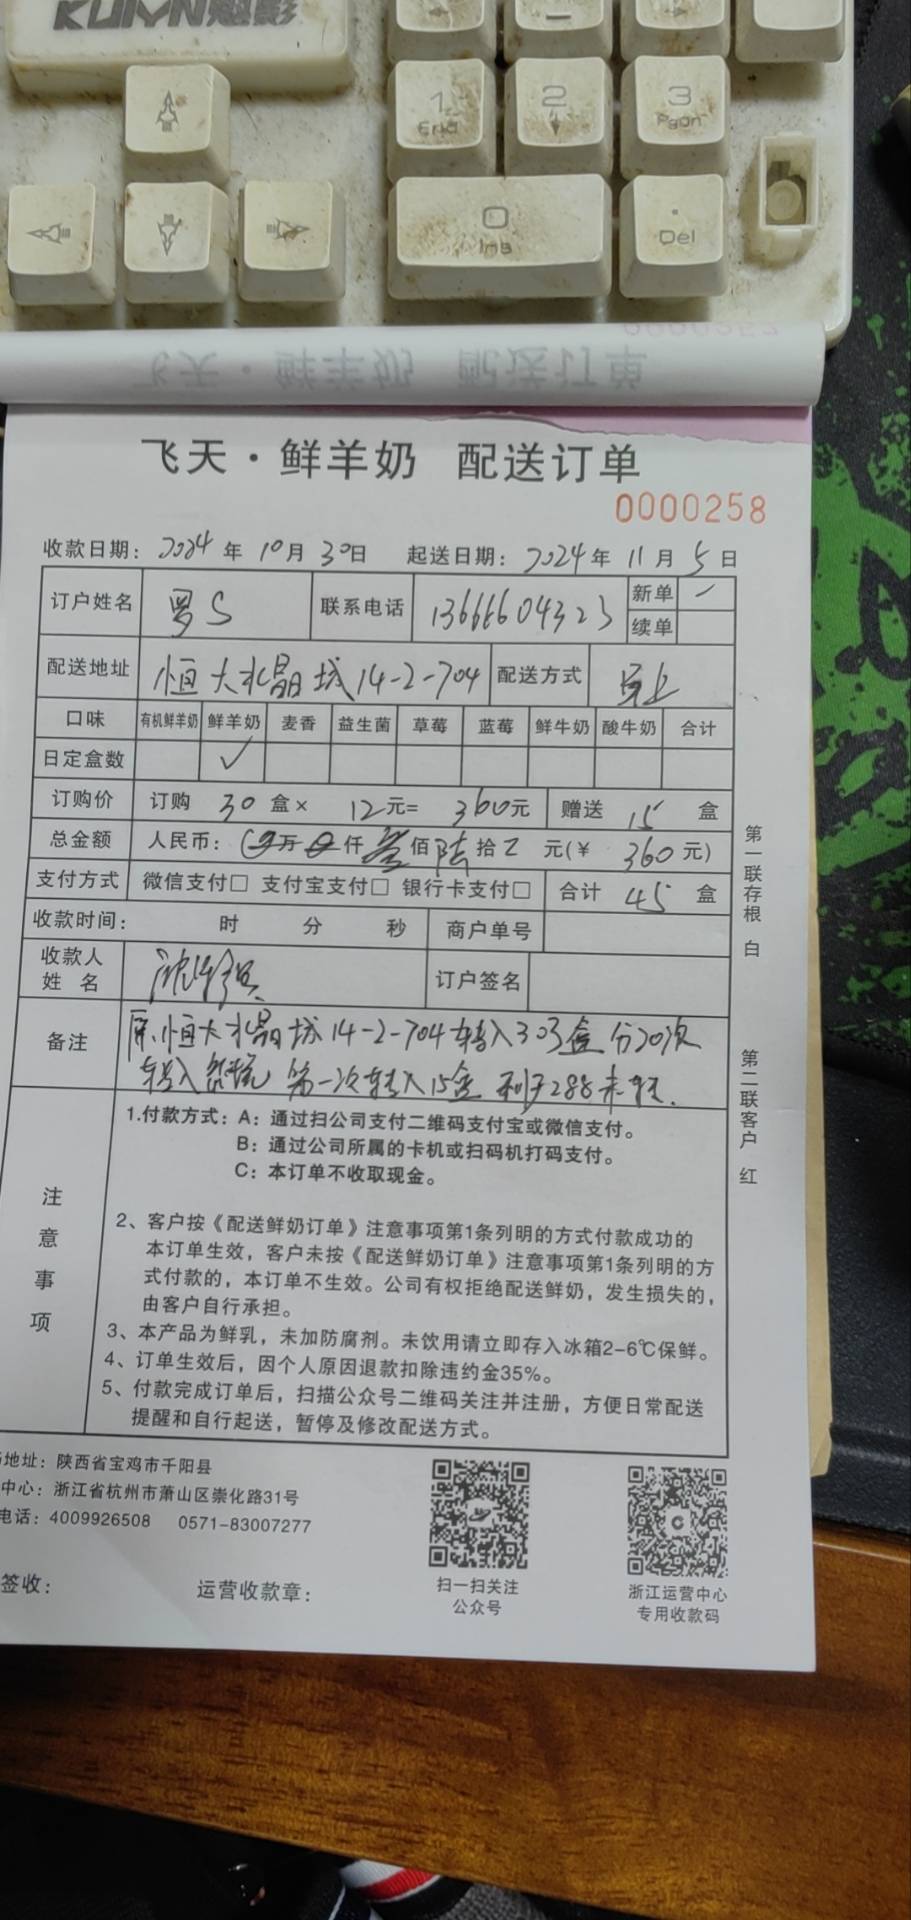 1 End
2
3 Pgdn
0 Ins
. Del
飞天·鲜羊奶 配送订单
0000258
收款日期: 2024年10月30日 起送日期: 2024年11月5日
订户姓名 罗S 联系电话 13666604323 新单 ✓
续单
配送地址 恒大水晶城14-2-704 配送方式
口味 有机鲜羊奶 鲜羊奶 麦香 益生菌 草莓 蓝莓 鲜牛奶 酸牛奶 合计
日定盒数 ✓
订购价 订购 30 盒× 12元= 360元 赠送 15 盒
总金额 人民币: 万 仟 叁佰陆拾 元(¥ 360元)
支付方式 微信支付□ 支付宝支付□ 银行卡支付□ 合计 45 盒
收款时间: 时 分 秒 商户单号
收款人姓名 订户签名
备注 原恒大水晶城14-2-704转入303盒 分20次
转入系统 第一次转入15盒 剩于288未转.
注意事项
1.付款方式: A: 通过扫公司支付二维码支付宝或微信支付。
B: 通过公司所属的卡机或扫码机打码支付。
C: 本订单不收取现金。
2、客户按《配送鲜奶订单》注意事项第1条列明的方式付款成功的
本订单生效,客户未按《配送鲜奶订单》注意事项第1条列明的方
式付款的,本订单不生效。公司有权拒绝配送鲜奶,发生损失的,
由客户自行承担。
3、本产品为鲜乳,未加防腐剂。未饮用请立即存入冰箱2-6℃保鲜。
4、订单生效后,因个人原因退款扣除违约金35%。
5、付款完成订单后,扫描公众号二维码关注并注册,方便日常配送
提醒和自行起送,暂停及修改配送方式。
第一联存根 白
第二联客户 红
地址: 陕西省宝鸡市千阳县
中心: 浙江省杭州市萧山区崇化路31号
电话: 4009926508 0571-83007277
签收: 运营收款章:
扫一扫关注
公众号
浙江运营中心
专用收款码